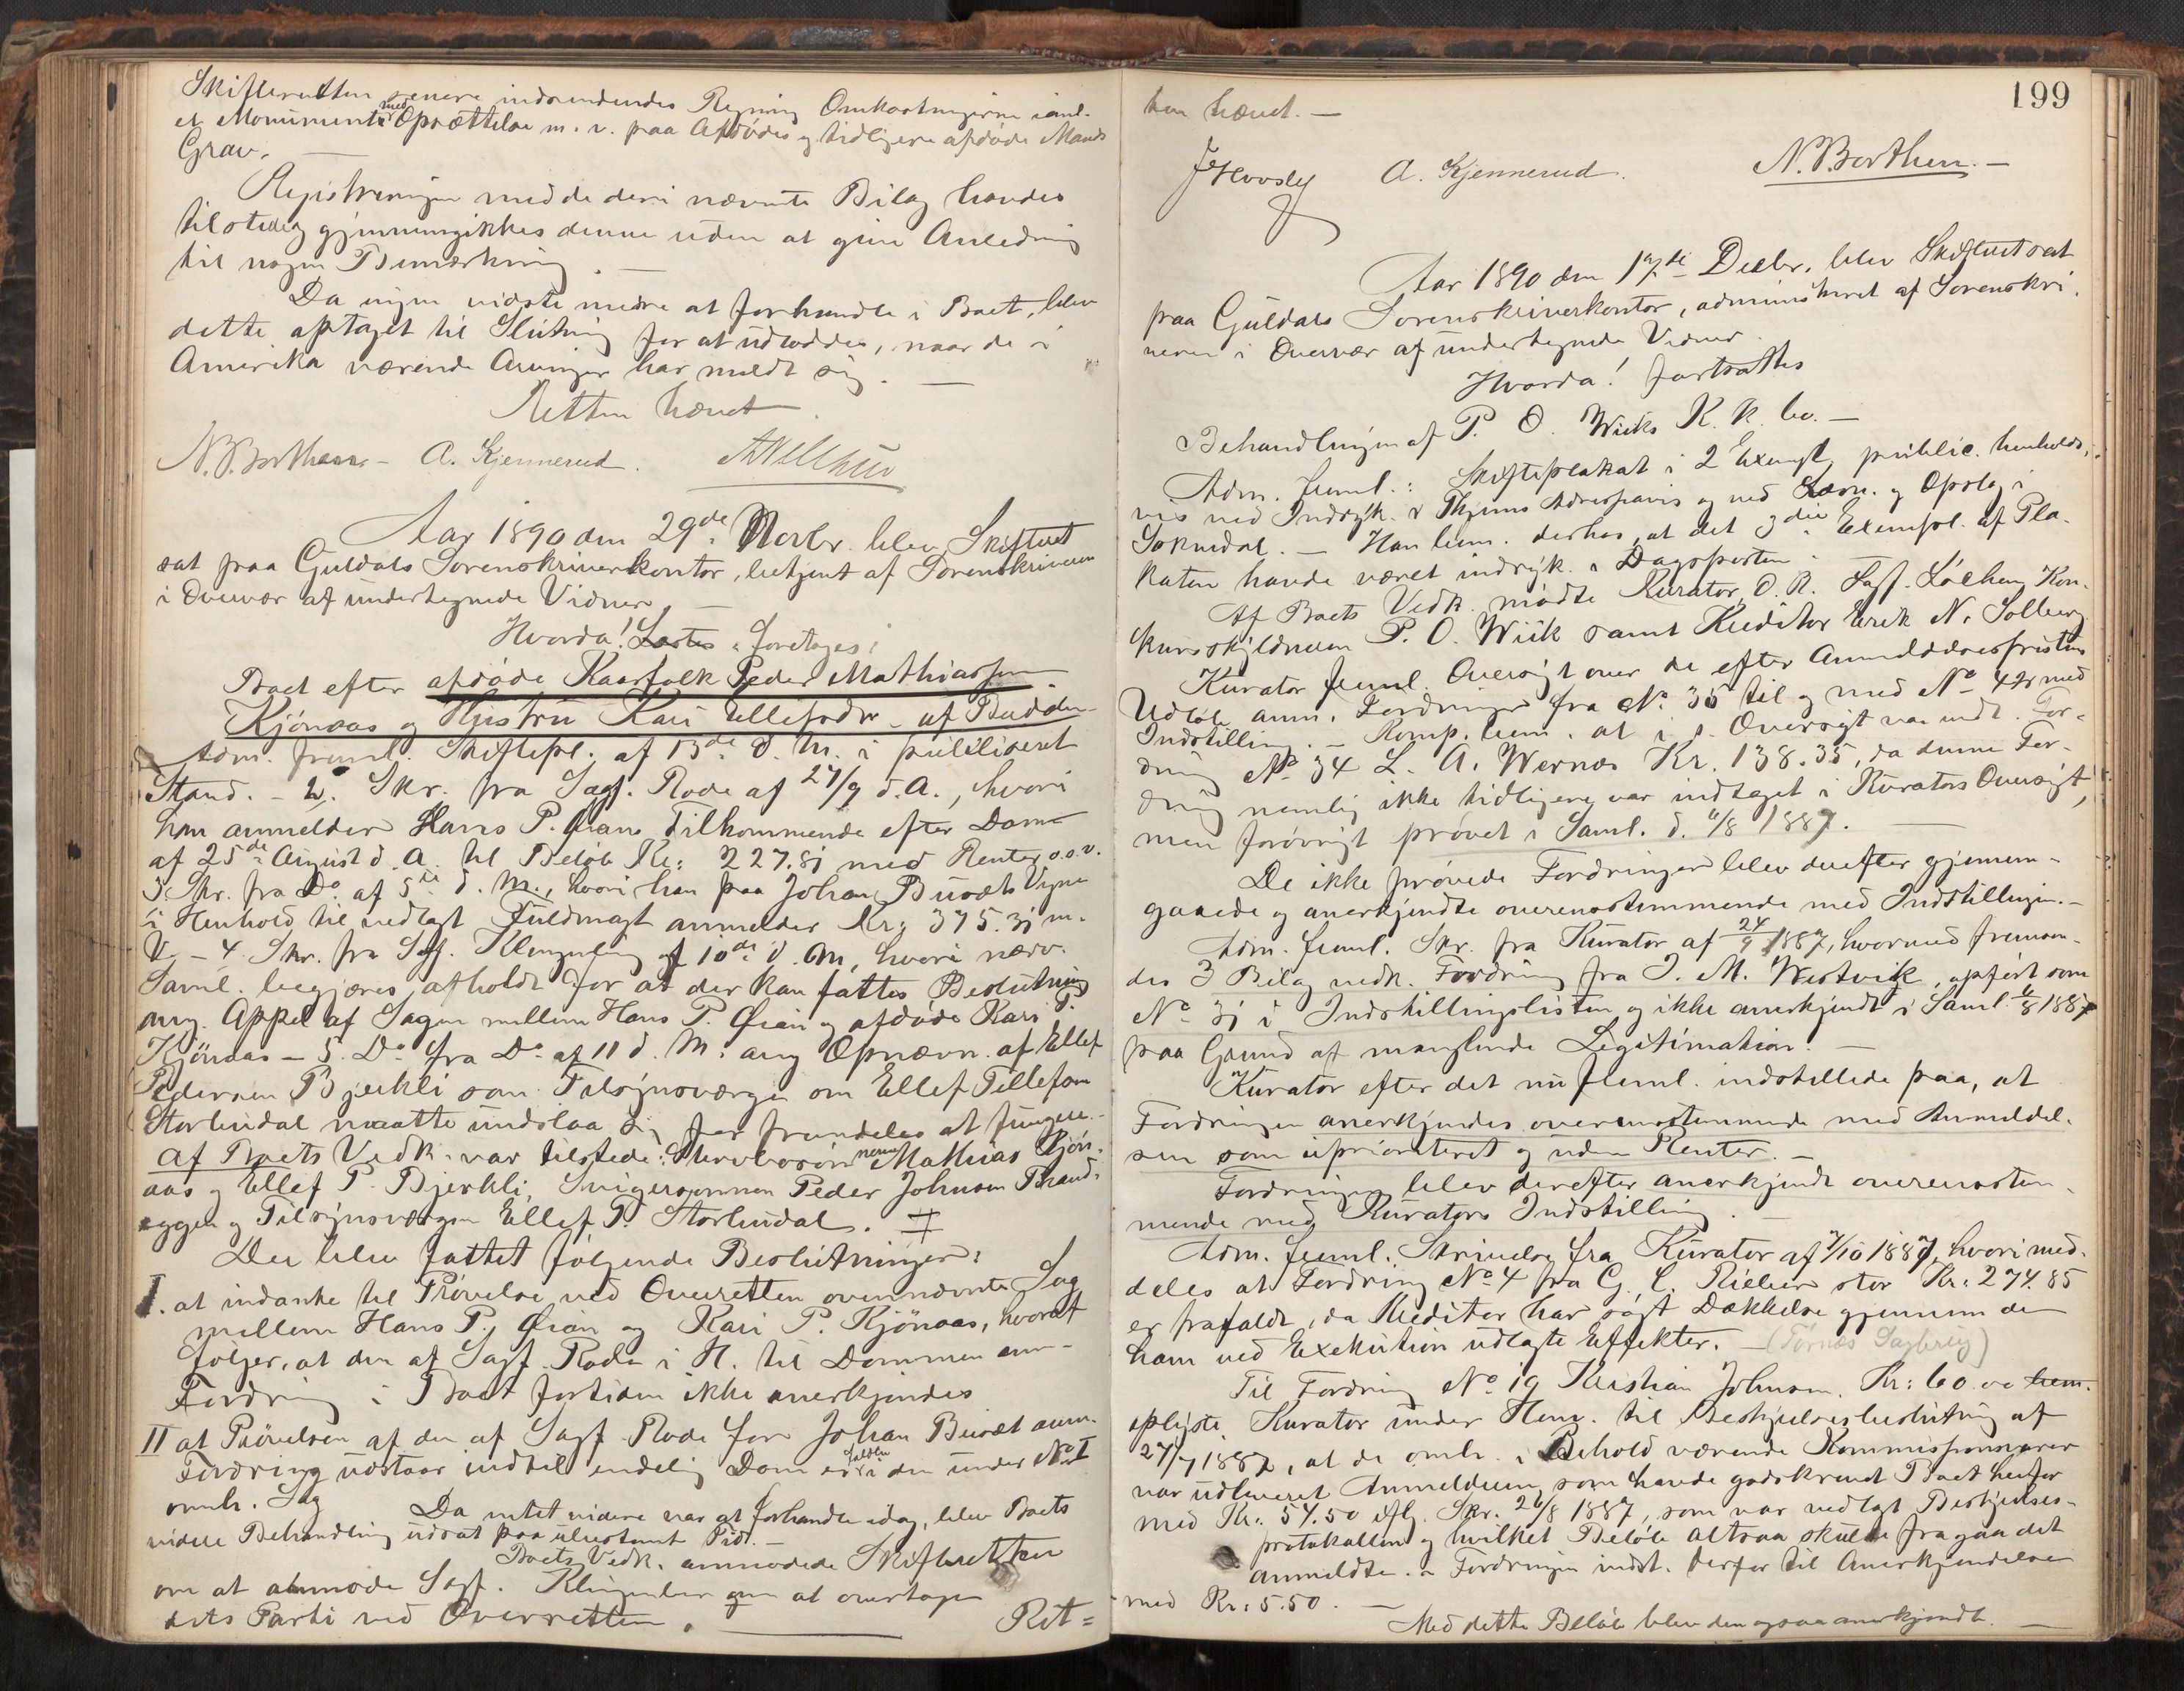 Skifteretten senere indsendendes Regning Omkostningerne i anl.
et Monuments med Oprættelse m. v. paa Afdødes og tidligere afdøde Mands
Grav. —
Registreringen med de deri nævnte Bilag havdes
tilstede og gjennemgikkes denne uden at give Anledning
til nogen Bemærkning. —
Da ingen vidste mere at forhandle i Boet, blev
dette optaget til Slutning for at udloddes, naar de i
Amerika værende Arvinger har meldt sig. —
Retten hævet.
N. Borthen - A. Kjennerud.
Aar 1890 den 29de Novbr. blev Skifteret
sat paa Guldals Sorenskriverkontor, betjent af Sorenskriveren
i Overvær af undertegnede Vidner. —
Hvorda! foretages:
Boet efter afdøde Kaarfolk Peder Mathiassen
Kjönaas og Hustru Kari Ellefsdtr. af Budalen
Adm. freml. Skiftepl. af 13de d. M. i publiceret
Stand. - 2. Skr. fra Sagf. Rode af 27/9 d. A., hvori
han anmelder Hans P. Øians Tilkommende efter Dom
af 25de August d. A. til Beløb Kr: 227.81 med Renter o.s.v.
3. Skr. fra Do af 5te d. M., hvori han paa Johan Busets Vegne
i Henhold til vedlagt Fuldmagt anmelder Kr: 375.31 m.
V. - 4. Skr. fra Sagf. Klingenberg af 10de d. M., hvori nærv.
Saml. begjæres afholdt for at der kan fattes Beslutning
ang. Appel af Sagen mellem Hans P. Øian og afdøde Kari P.
Kjönaas - 5. Do fra Do af 11 d. M. ang Opnævn. af Ellef
Pedersen Bjerkli som Tilsynsværge om Ellef Tillefsen
Storbudal maatte undslaa sig for fremdeles at fungere. -
Af Boets Vedk. var tilstede: Stervbosønnerne Mathias Kjön-
aas og Ellef P. Bjerkli, Svigersønnen Peder Johnsen Brand-
eggen og Tilsynsværgen Ellef T. Storbudal. ‡
Der blev fattet følgende Beslutninger:
I. at indanke til Prøvelse ved Overretten ovennævnte Sag
mellem Hans P. Øian og Kari P. Kjönaas, hvoraf
følger, at den af Sagf. Rode i H. til Dommen anm.
Fordring i Boet fortiden ikke anerkjendes
II at Prøvelsen af den af Sagf. Rode for Johan Buset anm.
Fordring udstaar indtil endelig Dom er falden i den under No I
omh. Sag
Da intet videre var at forhandle idag, blev Boets
videre Behandling udsat paa ubestemt Tid. —
Boets Vedk. anmodede Skifteretten
om at anmode Sagf. Klingenberg om at overtage
dets Parti ved Overretten. —— Ret=
199
ten hævet. —
A. Kjennerud. N. Borthen. —
Aar 1890 den 17de Decbr. blev Skifteret sat
paa Guldals Sorenskriverkontor, administreret af Sorenskri-
veren i Overvær af undertegnede Vidner.
Hvorda! fortsattes
Behandlingen af P. O. Wiiks K. K. bo. —
Adm. freml.: Skifteplakat i 2 Exempl. public. henholds-
vis ved Indryk. i Thjems Adresseavis og ved Læsn. og Opslag i
Soknedal. — Han bem. derhos, at det 3die Exempl. af Pla-
katen havde været indryk. i Dagsposten
Af Boets Vedk. mødte Kurator, O. R. Sagf. Løchen, Kon-
kursskyldneren P. O. Wiik samt Kreditor Erik N. Solberg
Kurator freml. Oversigt over de efter Anmeldelsesfristens
Udløb anm. Fordringer fra No 35 til og med No 42 med
Indstilling. — Komp. bem. at i d. Oversigt var indt. For-
dring No 34 L. A. Wernæs Kr. 138.35, da denne For-
dring nemlig ikke tidligere var indtaget i Kurators Oversigt,
men forøvrigt prøvet i Saml. d. 6/8 1887. —
De ikke prøvede Fordringer blev derefter gjennem-
gaaede og anerkjendte overensstemmende med Indstillingen. -
Adm. freml. Skr. fra Kurator af 24/9 1887, hvormed fremsen-
des 3 Bilag vedk. Fordring fra J. M. Westvik, opført som
No 31 i Indstillingslisten og ikke anerkjendt i Saml. 6/8 1887
paa Grund af manglende Legitimation. —
Kurator efter det nu freml. indstillede paa, at
Fordringen anerkjendes overensstemmende med Anmeldel-
sen som uprioriteret og uden Renter. —
Fordringen blev derefter anerkjendt overensstem-
mende med Kurators Indstilling. —
Adm. freml. Skrivelse fra Kurator af 7/10 1887, hvori med-
deles at Fordring No 4 fra G. C. Rieber stor Kr. 274.85
er frafaldt, da Kreditor har søgt Dækkelse gjennem de
ham ved Exekution udlagte Effekter. — (Törnæs Sagbrug)
Til Fordring No 19 Kristian Johnsen, Kr: 60.00 bem.
oplyste Kurator under Henv. til Bestyrelsesbeslutning af
27/7 1887, at de omh. i Behold værende Kommissionsvarer
var udleveret Anmelderen, som havde godskrevet Boet herfor
med Kr. 54.50 iflg. Skr. 26/8 1887, som var vedlagt Bestyrelses-
protokollen og hvilket Beløb altsaa skulde fragaa det
anmeldte. Fordringen indst. derfor til Anerkjendelse
med Kr: 5.50. —
Med dette Beløb blev den ogsaa anerkjendt. —